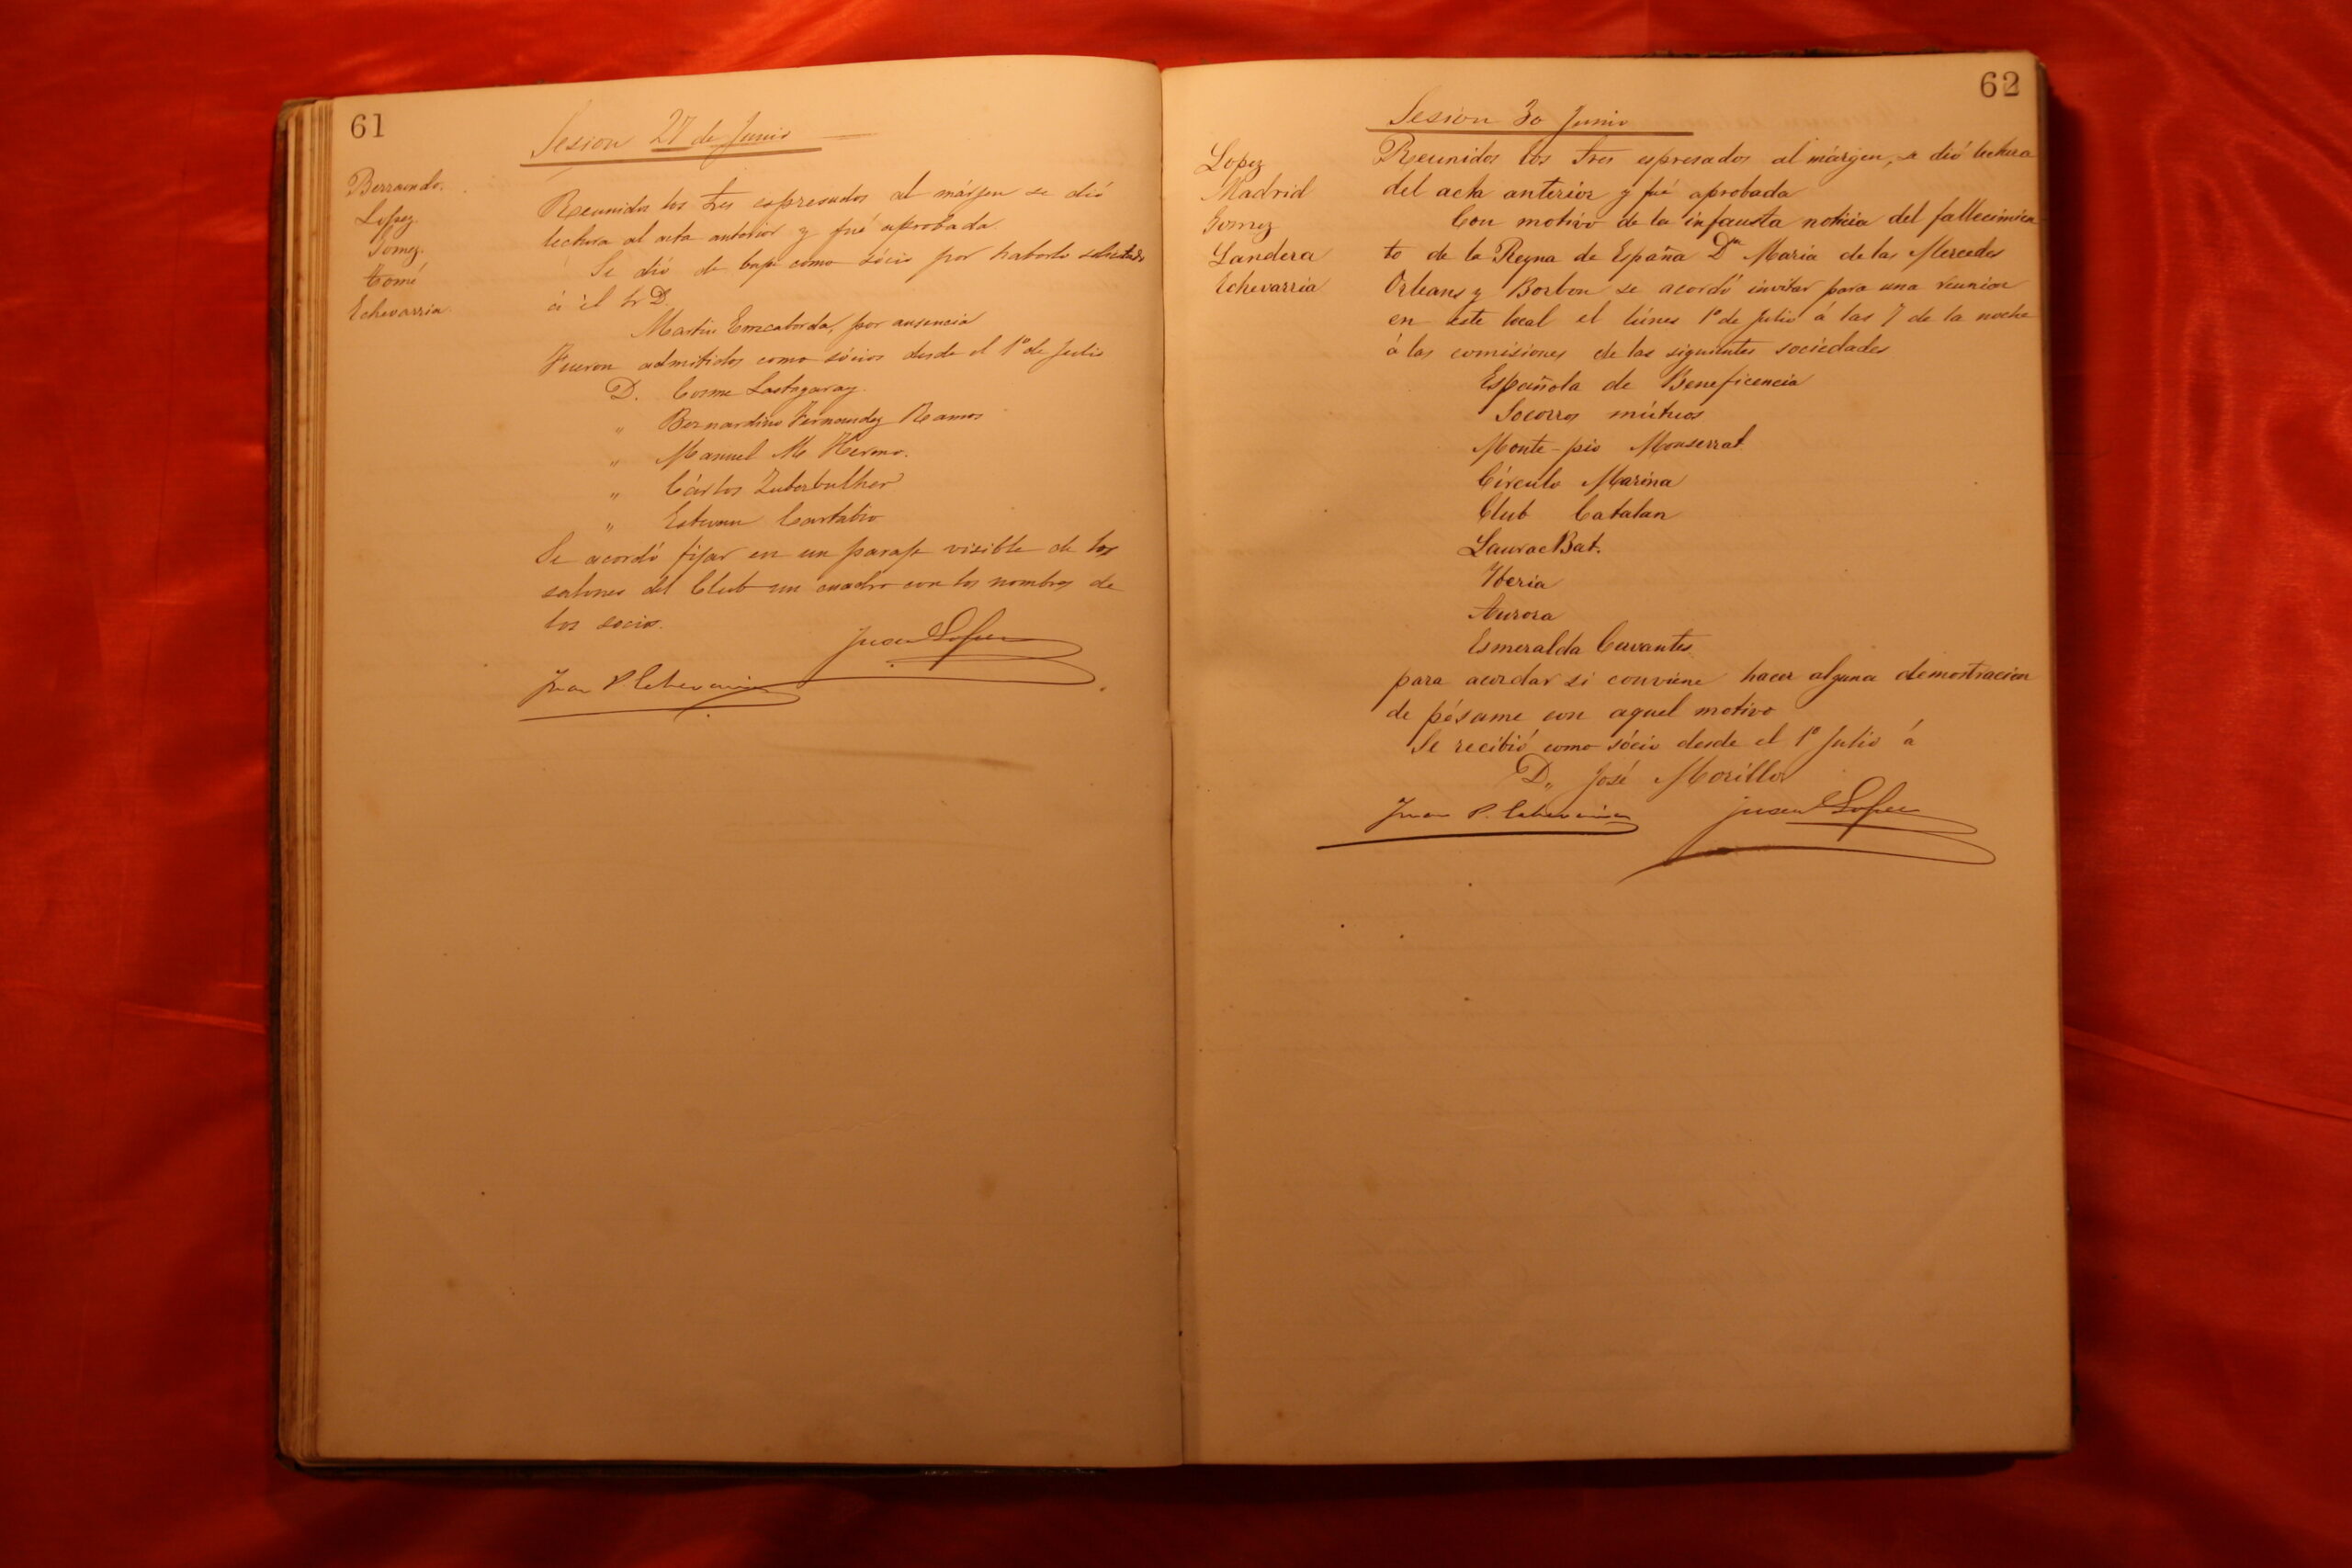 61
Sesion 27 de Junio
Berraondo.
Lopez.
Gomez.
Tomé
Echevarria
Reunidos los Sres espresados al márjen se dió
lectura al acta anterior y fué aprobada.
Se dió de baja como sócio por haberlo solicitado
á el Sr D.
Martin por ausencia
Fueron admitidos como sócios desde el 1º de Julio
D. Cosme Lastagaray.
„ Bernardino Fernandez Ramos
„ Manuel M Hermo.
„ Cárlos Zuberbulher
„ Estevan Cartabio
Se acordó fijar en un paraje visible de los
salones del Club un cuadro con los nombres de
los socios.
Juan Lopez
Juan P. Echevarria
62
Sesion 30 Junio
Lopez
Madrid
Gomez
Landera
Echevarria
Reunidos los Sres espresados al márgen, se dió lectura
del acta anterior y fué aprobada
Con motivo de la infausta noticia del fallecimien
to de la Reyna de España Dª Maria de las Mercedes
Orleans y Borbon se acordó invitar para una reunion
en este local el lúnes 1º de Julio á las 7 de la noche
á las comisiones de las siguientes sociedades
Española de Beneficencia
Socorros mútuos
Monte-pio Monserrat
Círculo Marina
Club Catalan
Laurac Bat.
Yberia
Aurora
Esmeralda Cervantes
para acordar si conviene hacer alguna demostracion
de pésame con aquel motivo
Se recibió como sócio desde el 1º Julio á
D„ José Morillo
Juan P. Echevarria Juan Lopez